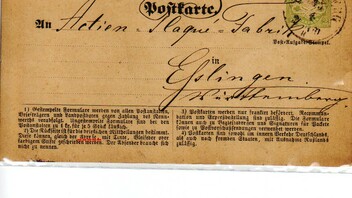 Postkarte.
An Actien-Plaqué-Fabrik
Post-Aufgabe-Stempel.
in
Esslingen.
Württemberg.
1) Gestempelte Formulare werden von allen Postanstalten,
Briefträgern und Landpostboten gegen Zahlung des Nenn-
werths verkauft. Ungestempelte Formulare sind bei den
Postanstalten zu 5 Stück käuflich.
2) Die Rückseite ist für die brieflichen Mittheilungen bestimmt.
Diese können, gleich der Adresse, mit Tinte, Bleifeder oder
farbigem Stifte geschrieben werden. Der Absender braucht sich
nicht zu nennen.
3) Postkarten werden nur frankirt befördert.
können auch zu
sowie zu Postvorschußsendungen verwendet werden.
4) Postkarten sind sowohl im innern Verkehr Deutschlands,
als auch nach fremden Staaten, mit Ausnahme Rußlands
zulässig.